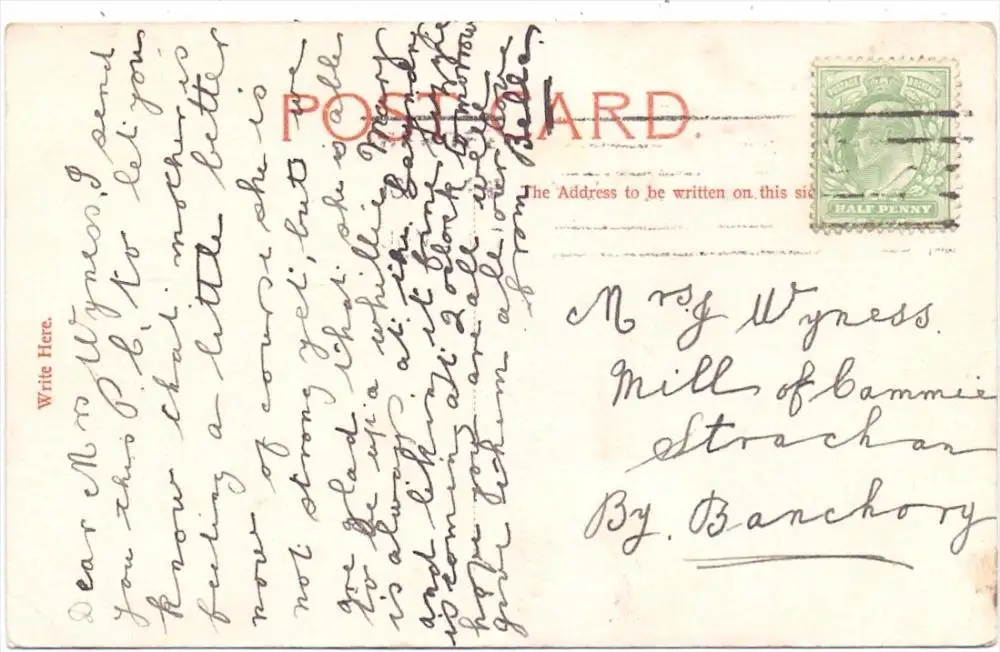 POST CARD
Write Here.
The Address to be written on this sid
POSTAGE REVENUE
HALF PENNY
Dear Mrs Wyness, I send
you this P.C, to let you
know that mother is
feeling a little better
now of course she is
not strong yet, but we
are glad that she is able
to be up a whillie Mary
is always at the Laundry
and liking it fine
is coming at 2 oclock tomorrow
hope you are all well
give them all our love
from Bella.
Mrs J Wyness.
Mill of Cammie
Strachan
By. Banchory